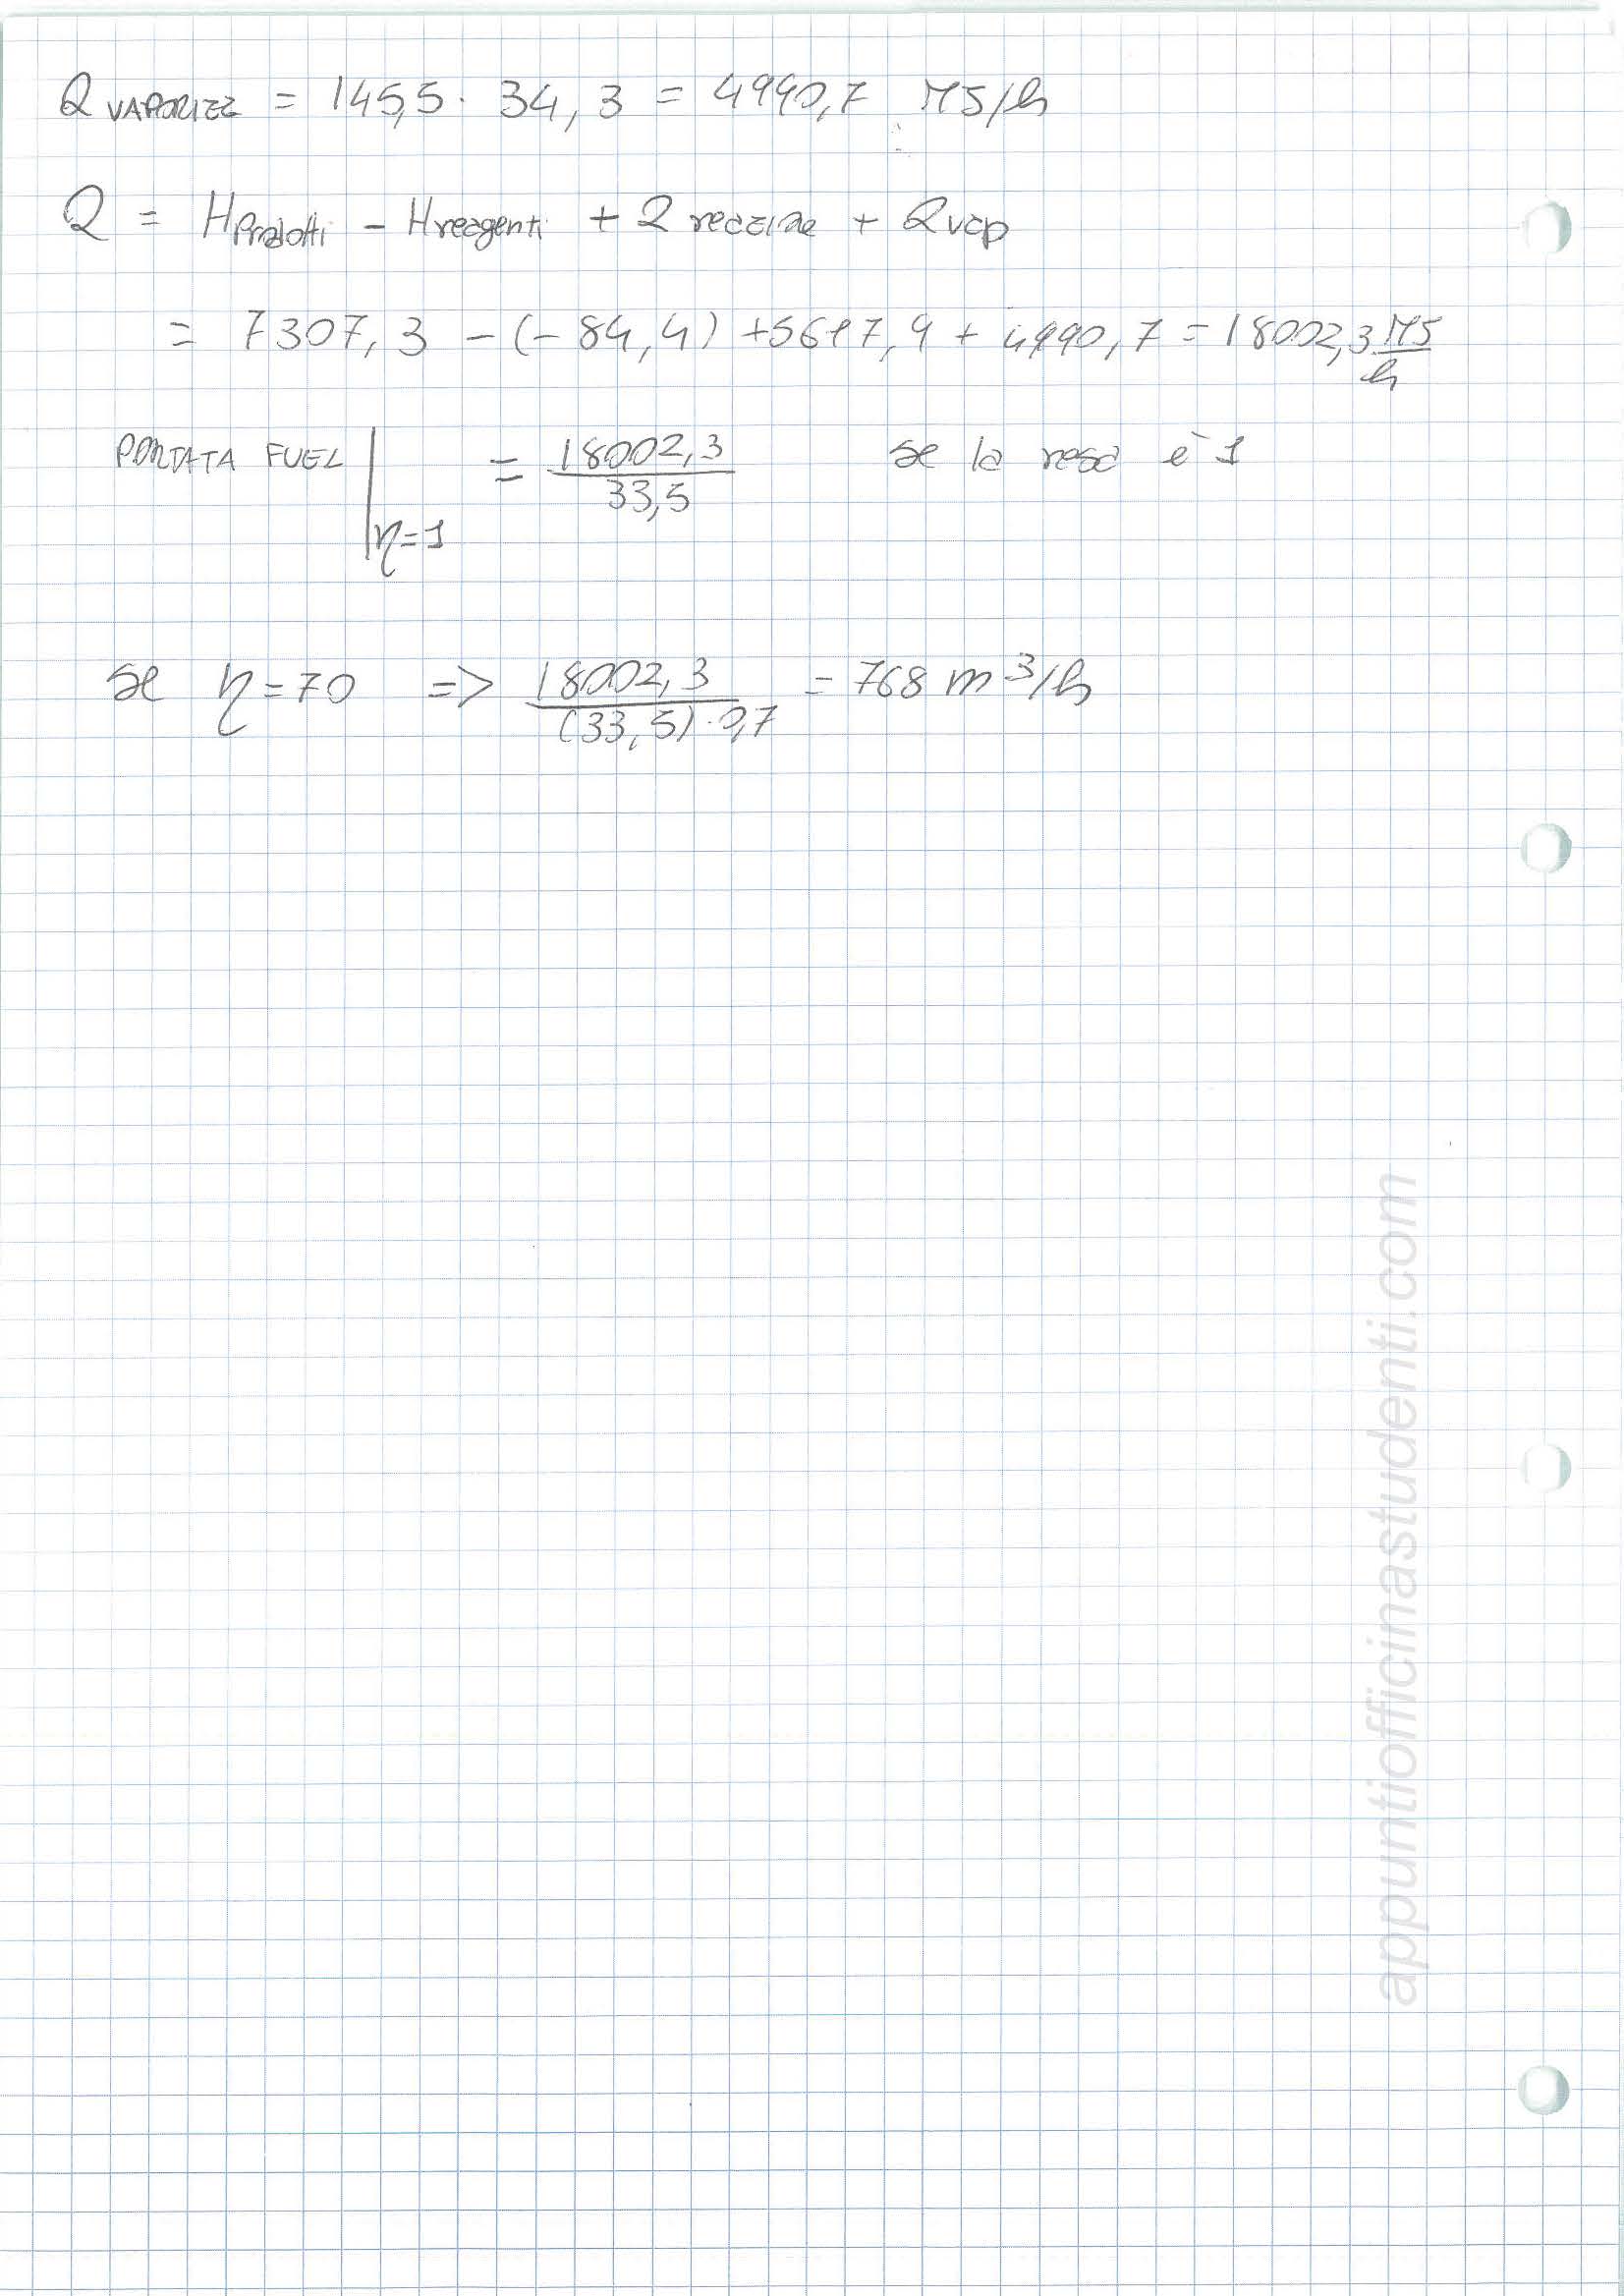 Q VAPORIZZ = 145,5 · 34,3 = 4990,7 MJ/h
Q = H Prodotti - H reagenti + Q reazione + Q vap
= 7307,3 - (-84,4) + 5617,9 + 4990,7 = 18002,3 MJ/h
PORTATA FUEL |η=1 = 18002,3 / 33,5 se la resa è 1
se η=70 => 18002,3 / (33,5)·0,7 = 768 m³/h
appuntiofficinastudenti.com